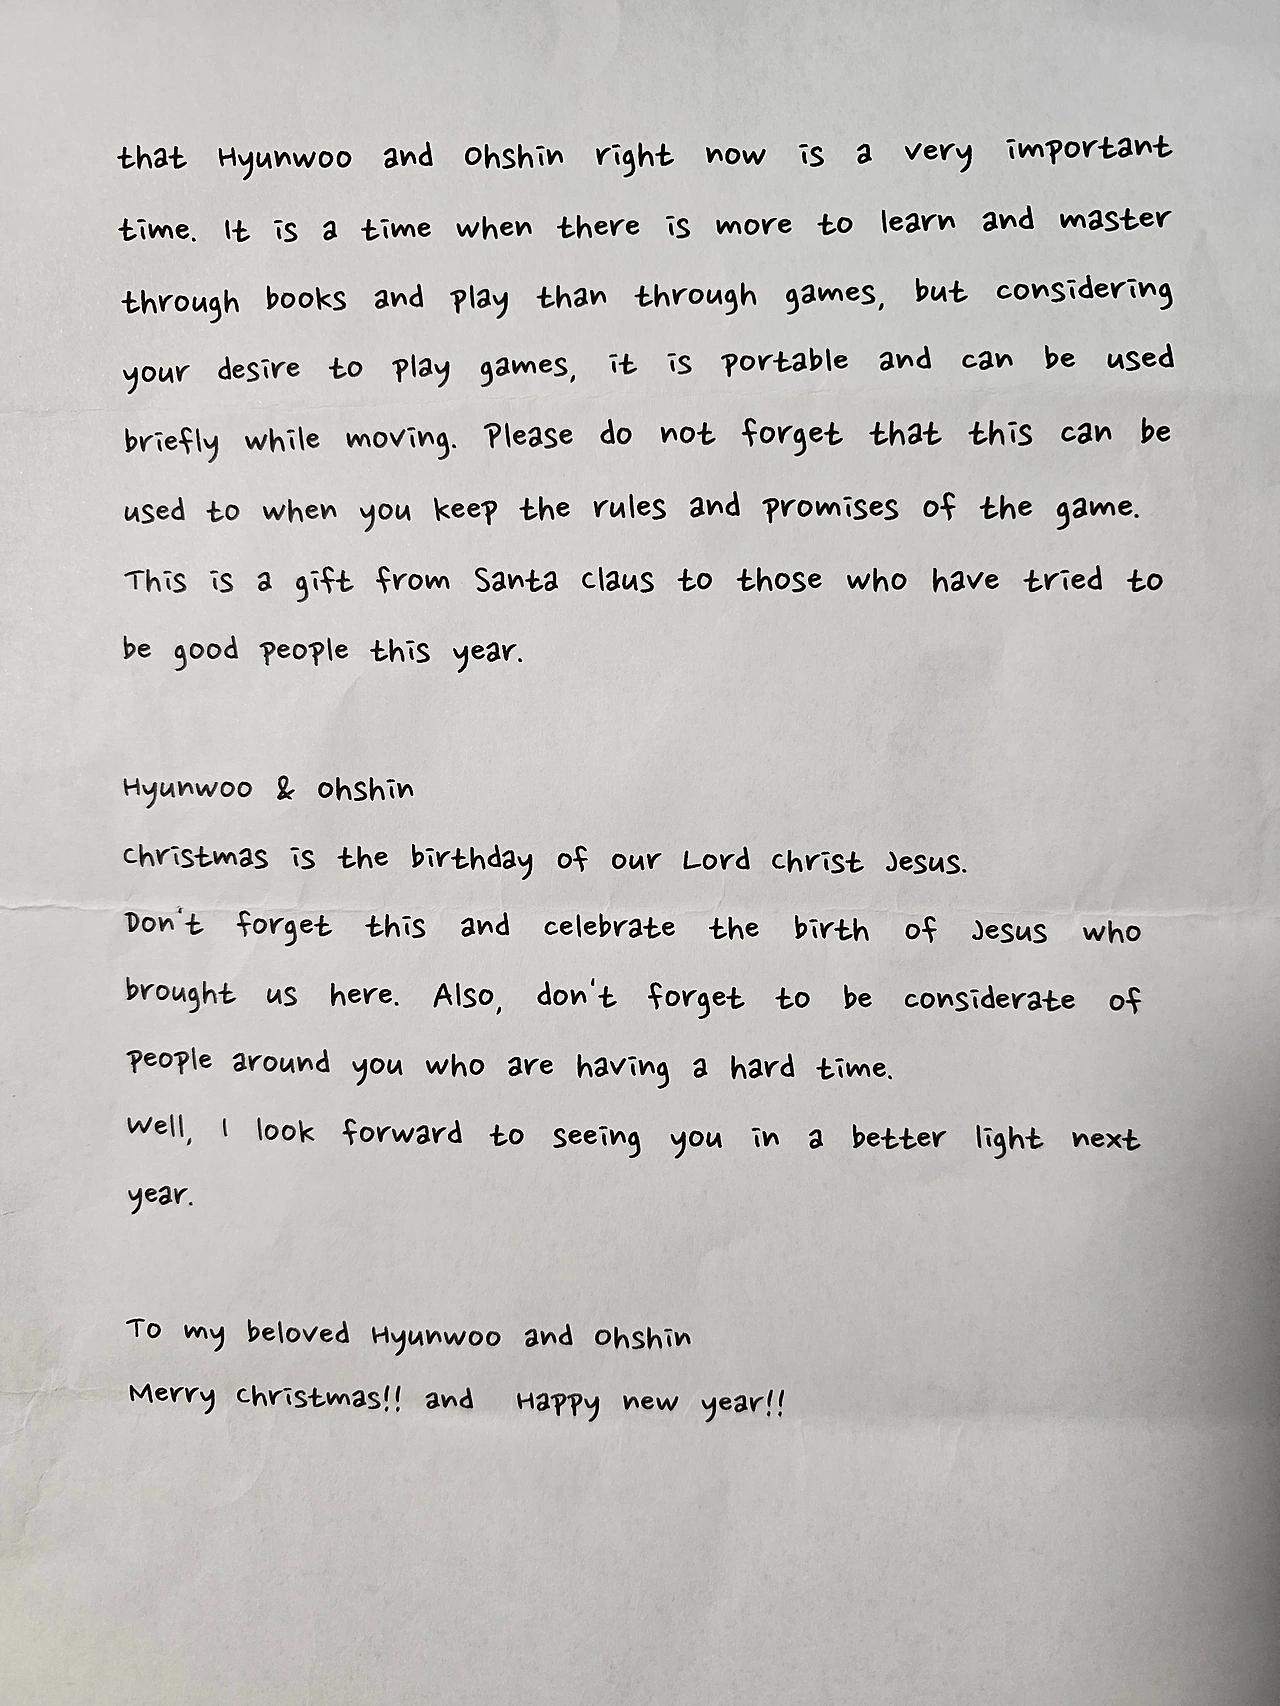 that Hyunwoo and Ohshin right now is a very important
time. It is a time when there is more to learn and master
through books and play than through games, but considering
your desire to play games, it is portable and can be used
briefly while moving. Please do not forget that this can be
used to when you keep the rules and promises of the game.
This is a gift from Santa Claus to those who have tried to
be good people this year.
Hyunwoo & Ohshin
Christmas is the birthday of our Lord Christ Jesus.
Don't forget this and celebrate the birth of Jesus who
brought us here. Also, don't forget to be considerate of
people around you who are having a hard time.
Well, I look forward to seeing you in a better light next
year.
To my beloved Hyunwoo and Ohshin
Merry Christmas!! and Happy new year!!